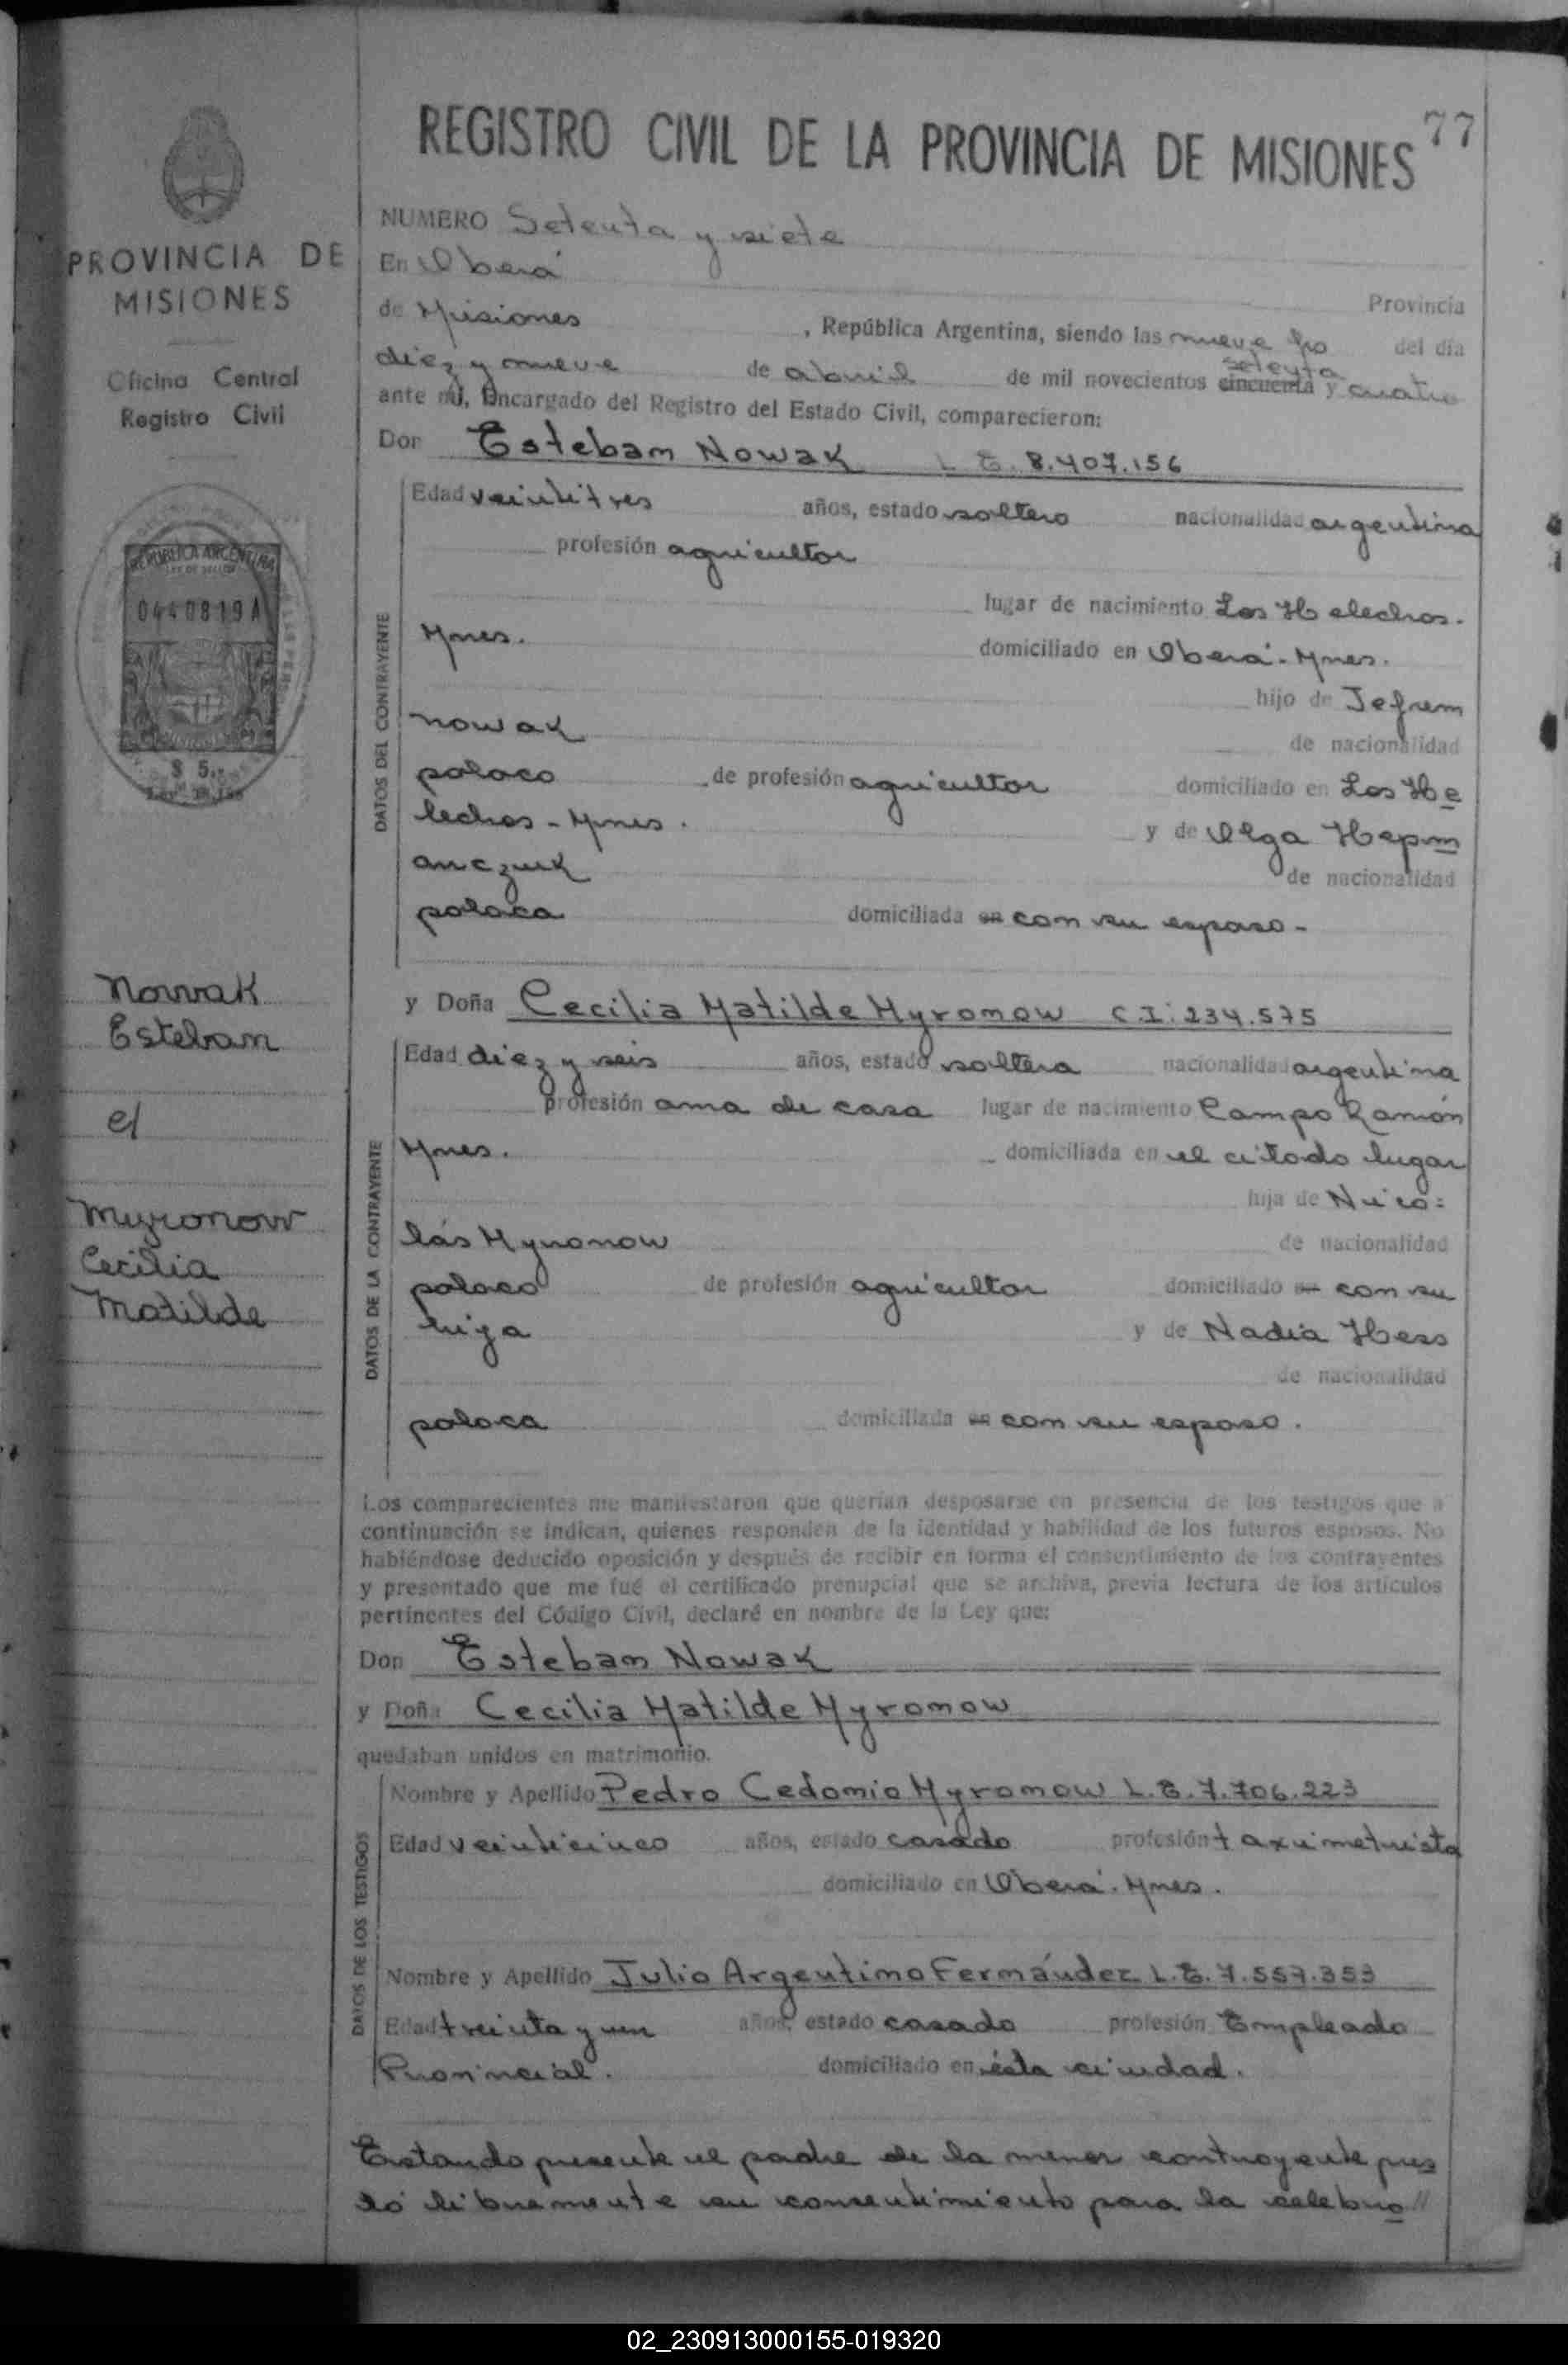 REGISTRO CIVIL DE LA PROVINCIA DE MISIONES 77
PROVINCIA DE
MISIONES
Oficina Central
Registro Civil
REPUBLICA ARGENTINA
LEY DE SELLOS
0440819A
$ 5.-
Nowak
Esteban
c/
Myronow
Cecilia
Matilde
NUMERO Setenta y siete
En Oberá
Provincia
de Misiones , República Argentina, siendo las nueve hs del día
diez y nueve de abril de mil novecientos setenta cincuenta y cuatro
ante mí, Encargado del Registro del Estado Civil, comparecieron:
Don Esteban Nowak L E. 8.407.156
DATOS DEL CONTRAYENTE
Edad veintitres años, estado soltero nacionalidad argentina
profesión agricultor
lugar de nacimiento Los Helechos.
Mnes. domiciliado en Oberá - Mnes.
hijo de Jefrem
Nowak de nacionalidad
polaco de profesión agricultor domiciliado en Los He
lechos - Mnes. y de Olga
anczuk de nacionalidad
polaca domiciliada en con su esposo -
y Doña Cecilia Matilde Myronow C.I: 234.575
DATOS DE LA CONTRAYENTE
Edad diez y seis años, estado soltera nacionalidad argentina
profesión ama de casa lugar de nacimiento Campo Ramón
Mnes. domiciliada en el citado lugar
hija de Nico=
lás Myronow de nacionalidad
polaco de profesión agricultor domiciliado en con su
hija y de Nadia Hess
de nacionalidad
polaca domiciliada en con su esposo.
Los comparecientes me manifestaron que querían desposarse en presencia de los testigos que a
continuación se indican, quienes responden de la identidad y habilidad de los futuros esposos. No
habiéndose deducido oposición y después de recibir en forma el consentimiento de los contrayentes
y presentado que me fué el certificado prenupcial que se archiva, previa lectura de los artículos
pertinentes del Código Civil, declaré en nombre de la Ley que:
Don Esteban Nowak
y Doña Cecilia Matilde Myronow
quedaban unidos en matrimonio.
DATOS DE LOS TESTIGOS
Nombre y Apellido Pedro Cedomio Myronow L.E. 7.706.223
Edad veinticinco años, estado casado profesión taximetrista
domiciliado en Oberá. Mnes.
Nombre y Apellido Julio Argentino Fernández L.E. 7.557.353
Edad treinta y un años, estado casado profesión Empleado
Provincial. domiciliado en ésta ciudad.
Estando presente el padre de la menor contrayente pres
tó libremente su consentimiento para la celebra//
02_230913000155-019320